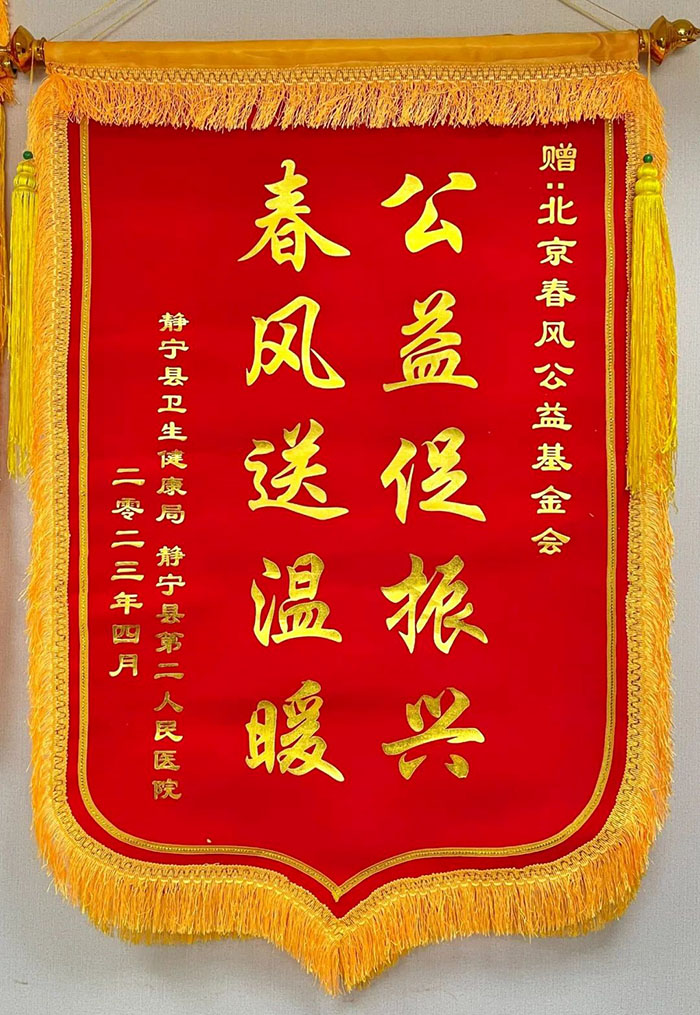 赠:北京春风公益基金会
公益促振兴
春风送温暖
静宁县卫生健康局 静宁县第二人民医院
二零二三年四月